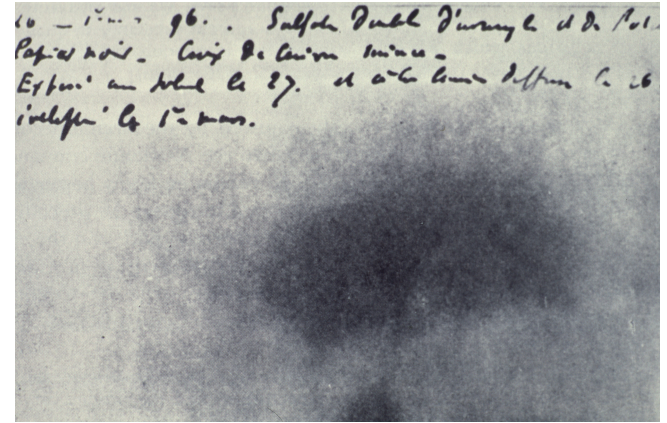 96. Sulfate Double d'uranyle et de
Papier noir. Croix de Cuivre mince.
Exposé au soleil le 27. et à la lumière diffuse le 26
développé le 1er mars.